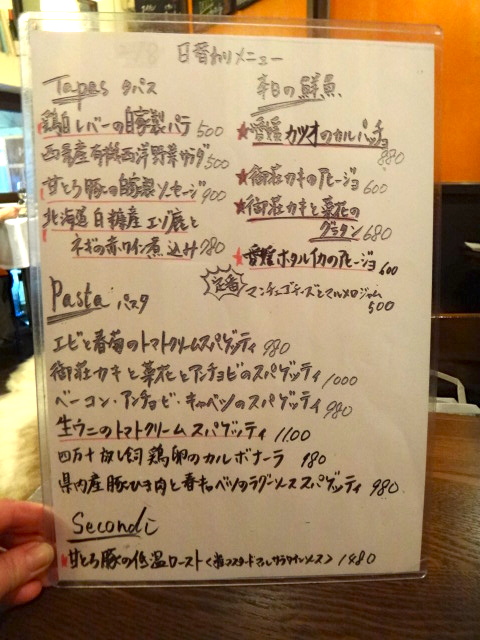 日替わりメニュー
Tapas タパス
鶏白レバーの自家製パテ 500
西条産有機西洋野菜サラダ 500
甘とろ豚の自家製ソーセージ 900
北海道白糠産エゾ鹿と
ネギの赤ワイン煮込み 780
本日の鮮魚
★愛媛カツオのカルパッチョ
880
★御荘カキのアヒージョ 600
★御荘カキと菜花の
グラタン 680
★愛媛ホタルイカのアヒージョ 600
定番 マンチェゴチーズとマルメロジャム
500
Pasta パスタ
エビと春菊のトマトクリームスパゲッティ 980
御荘カキと菜花とアンチョビのスパゲッティ 1000
ベーコン・アンチョビ・キャベツのスパゲッティ 980
生ウニのトマトクリームスパゲッティ 1100
四万十放し飼鶏卵のカルボナーラ 980
県内産豚ひき肉と春キャベツのラグーソーススパゲッティ 980
Secondi
甘とろ豚の低温ロースト 1480